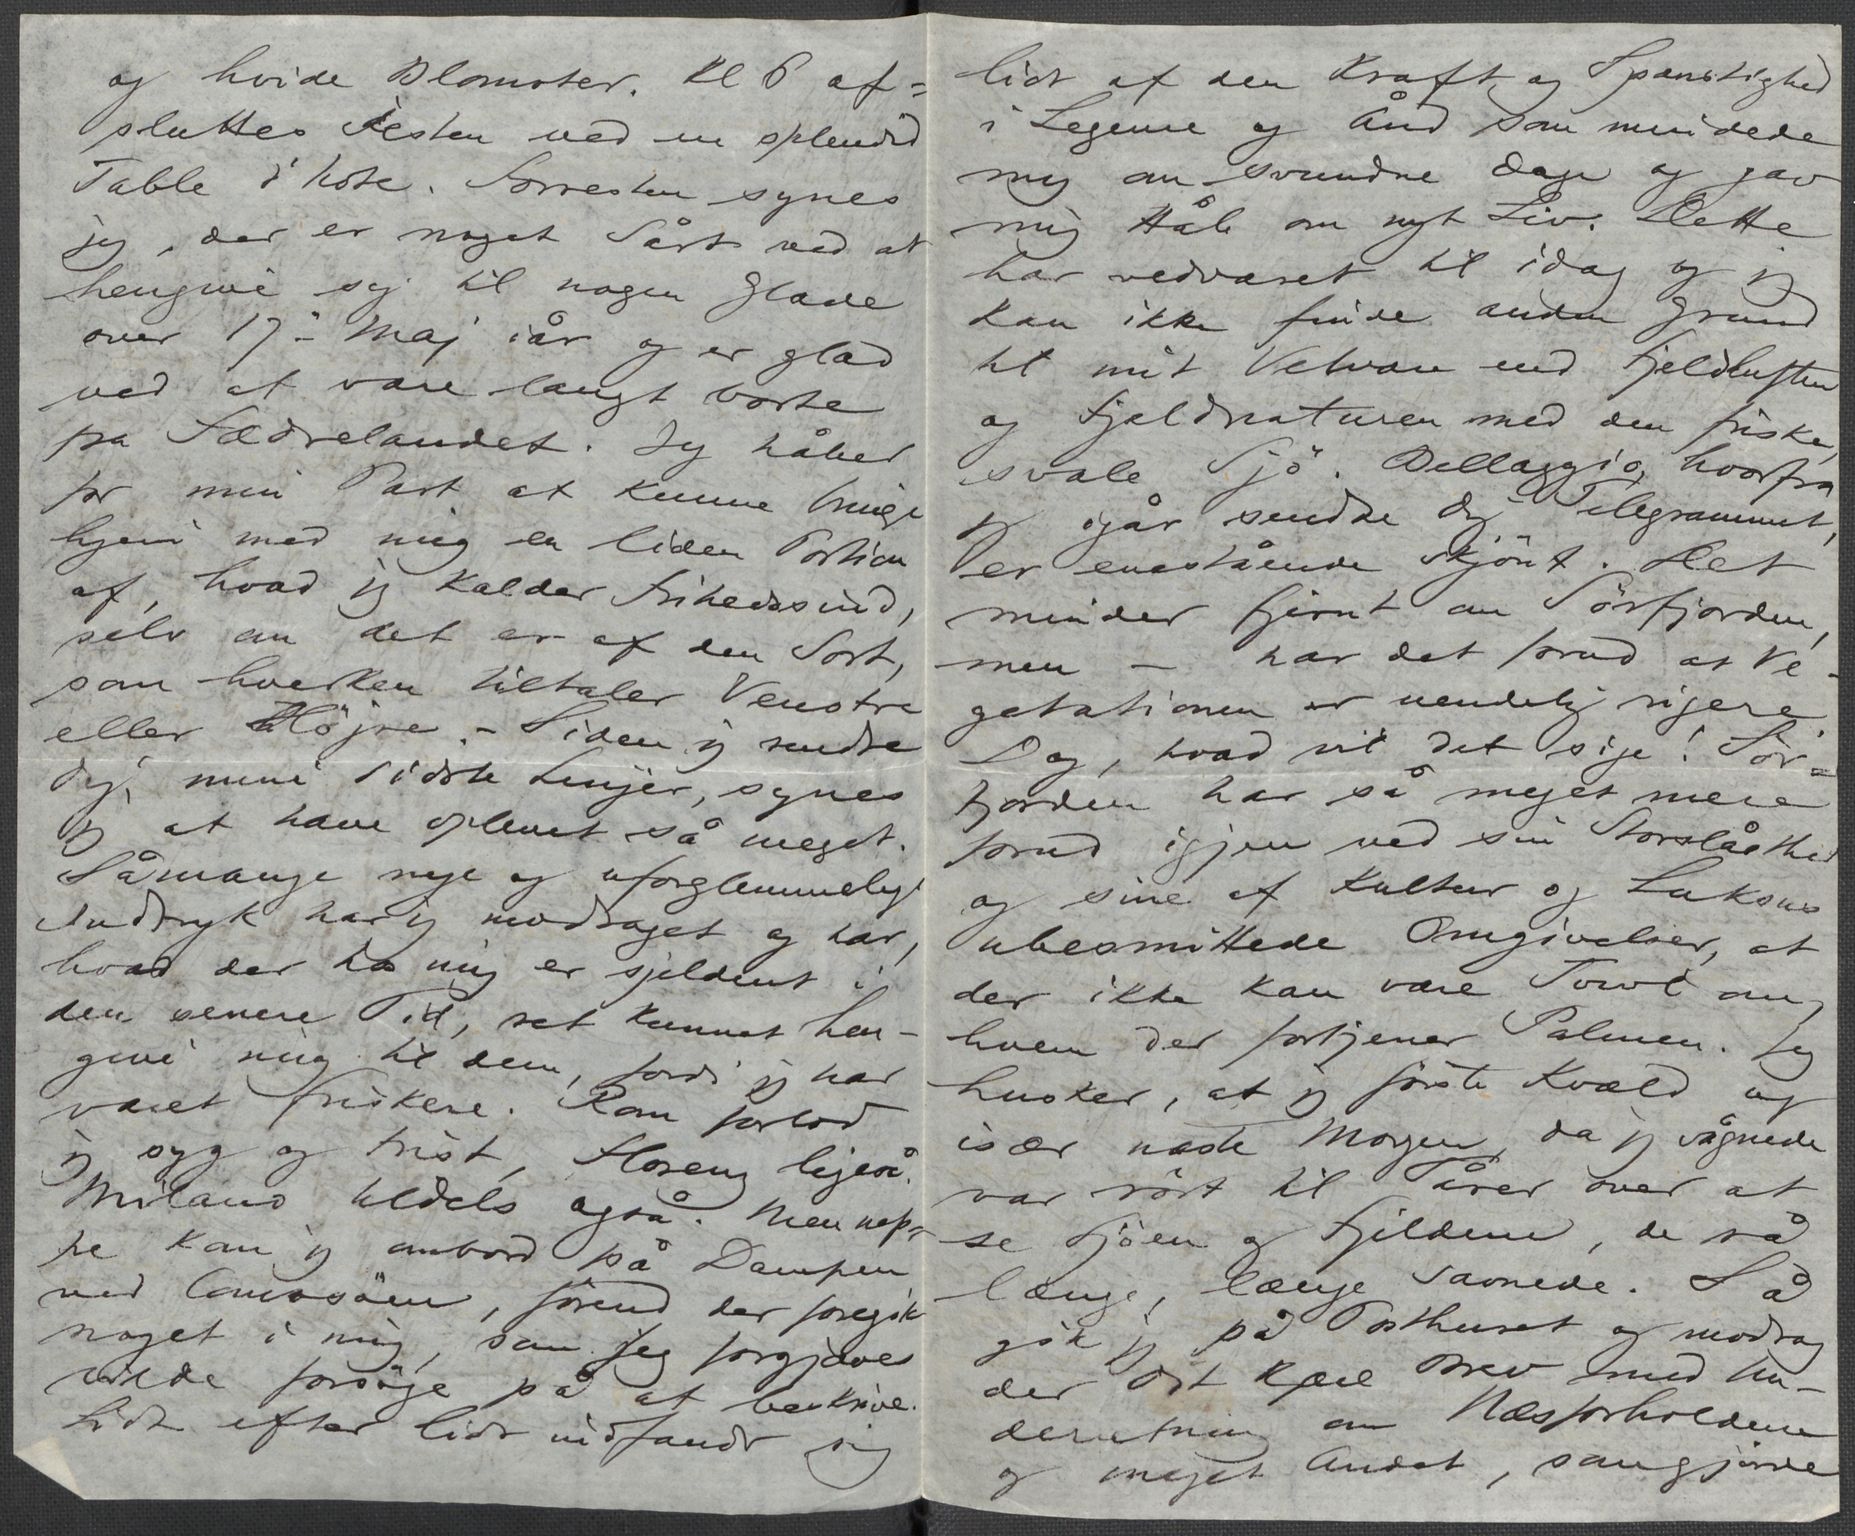 og hvide Blomster. Kl 6 af=
sluttes Festen ved en splendid
Table d'hote. Forresten synes
jeg, der er noget Sårt ved at
hengive sig til nogen Glæde
over 17de Maj iår og er glad
ved at være langt borte
fra Fædrelandet. Jeg håber
for min Part at kunne bringe
hjem med mig en liden Portion
af, hvad jeg kalder Frihedssind,
selv om det er af den Sort,
som hverken tiltaler Venstre
eller Højre. – Siden jeg sendte
dig mine sidste Linjer, synes
jeg at have oplevet så meget.
Såmange nye og uforglemmelige
Indtryk har jeg modtaget og har,
hvad der hos mig er sjeldent i
den senere Tid, ret kunnet hen-
give mig til dem, fordi jeg har
været friskere. Rom forlod
jeg syg og trist, Florenz ligeså.
Miland tildels også. Men nep-
pe kom jeg ombord på Dampen
ved Comosöen, förend der foregik
noget i mig, som jeg forgjæves
vilde forsöge på at beskrive.
Lidt efter lidt indfandt sig
lidt af den Kraft og Spænstighed
i Legeme og Ånd som mindede
mig om svundne Dage og gav
mig Håb om nyt Liv. Dette
har vedvaret til idag og jeg
kan ikke finde anden Grund
til mit Velvære end Fjeldluften
og Fjeldnaturen med den friske,
svale Sjö. Bellaggio, hvorfra
jeg igår sendte dig Telegrammet,
er enestående skjönt. Det
minder fjernt om Sörfjorden,
men – har det forud at Ve-
getationen er uendelig rigere.
Dog, hvad vil det sige! Sör=
fjorden har så meget mere
forud igjen ved sin Storslåthed
og sine af Kultur og Luksus
ubesmittede Omgivelser, at
der ikke kan være Tvivl om,
hvem der fortjener Palmen. Jeg
husker, at jeg förste Kvæld og
især næste Morgen, da jeg vågnede
var rört til Tårer over at
se Sjöen og Fjeldene, de så
længe, længe savnede. Så
gik jeg på Posthuset og modtog
der dit kjære Brev med Un-
deretning om Næsforholdene
og meget Andet, som gjorde